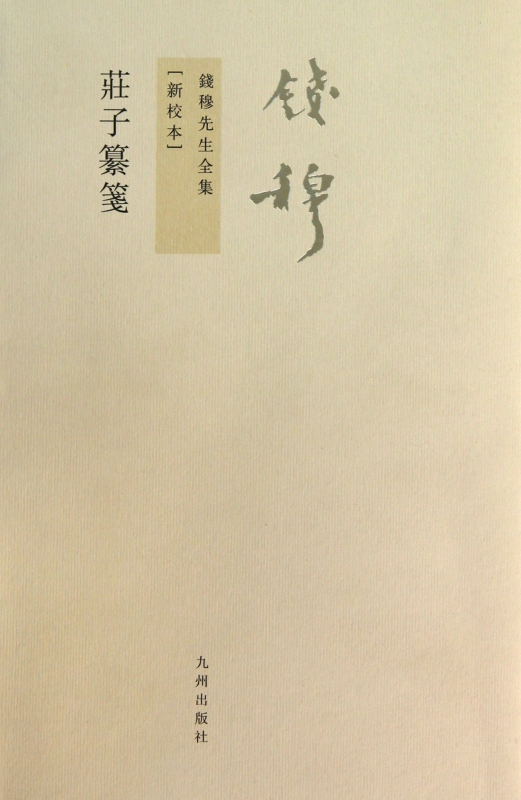 錢穆
錢穆先生全集
[新校本]
莊子纂箋
九州出版社